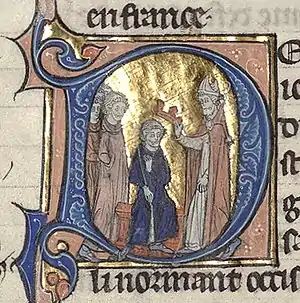 en france.
D
li normant occis